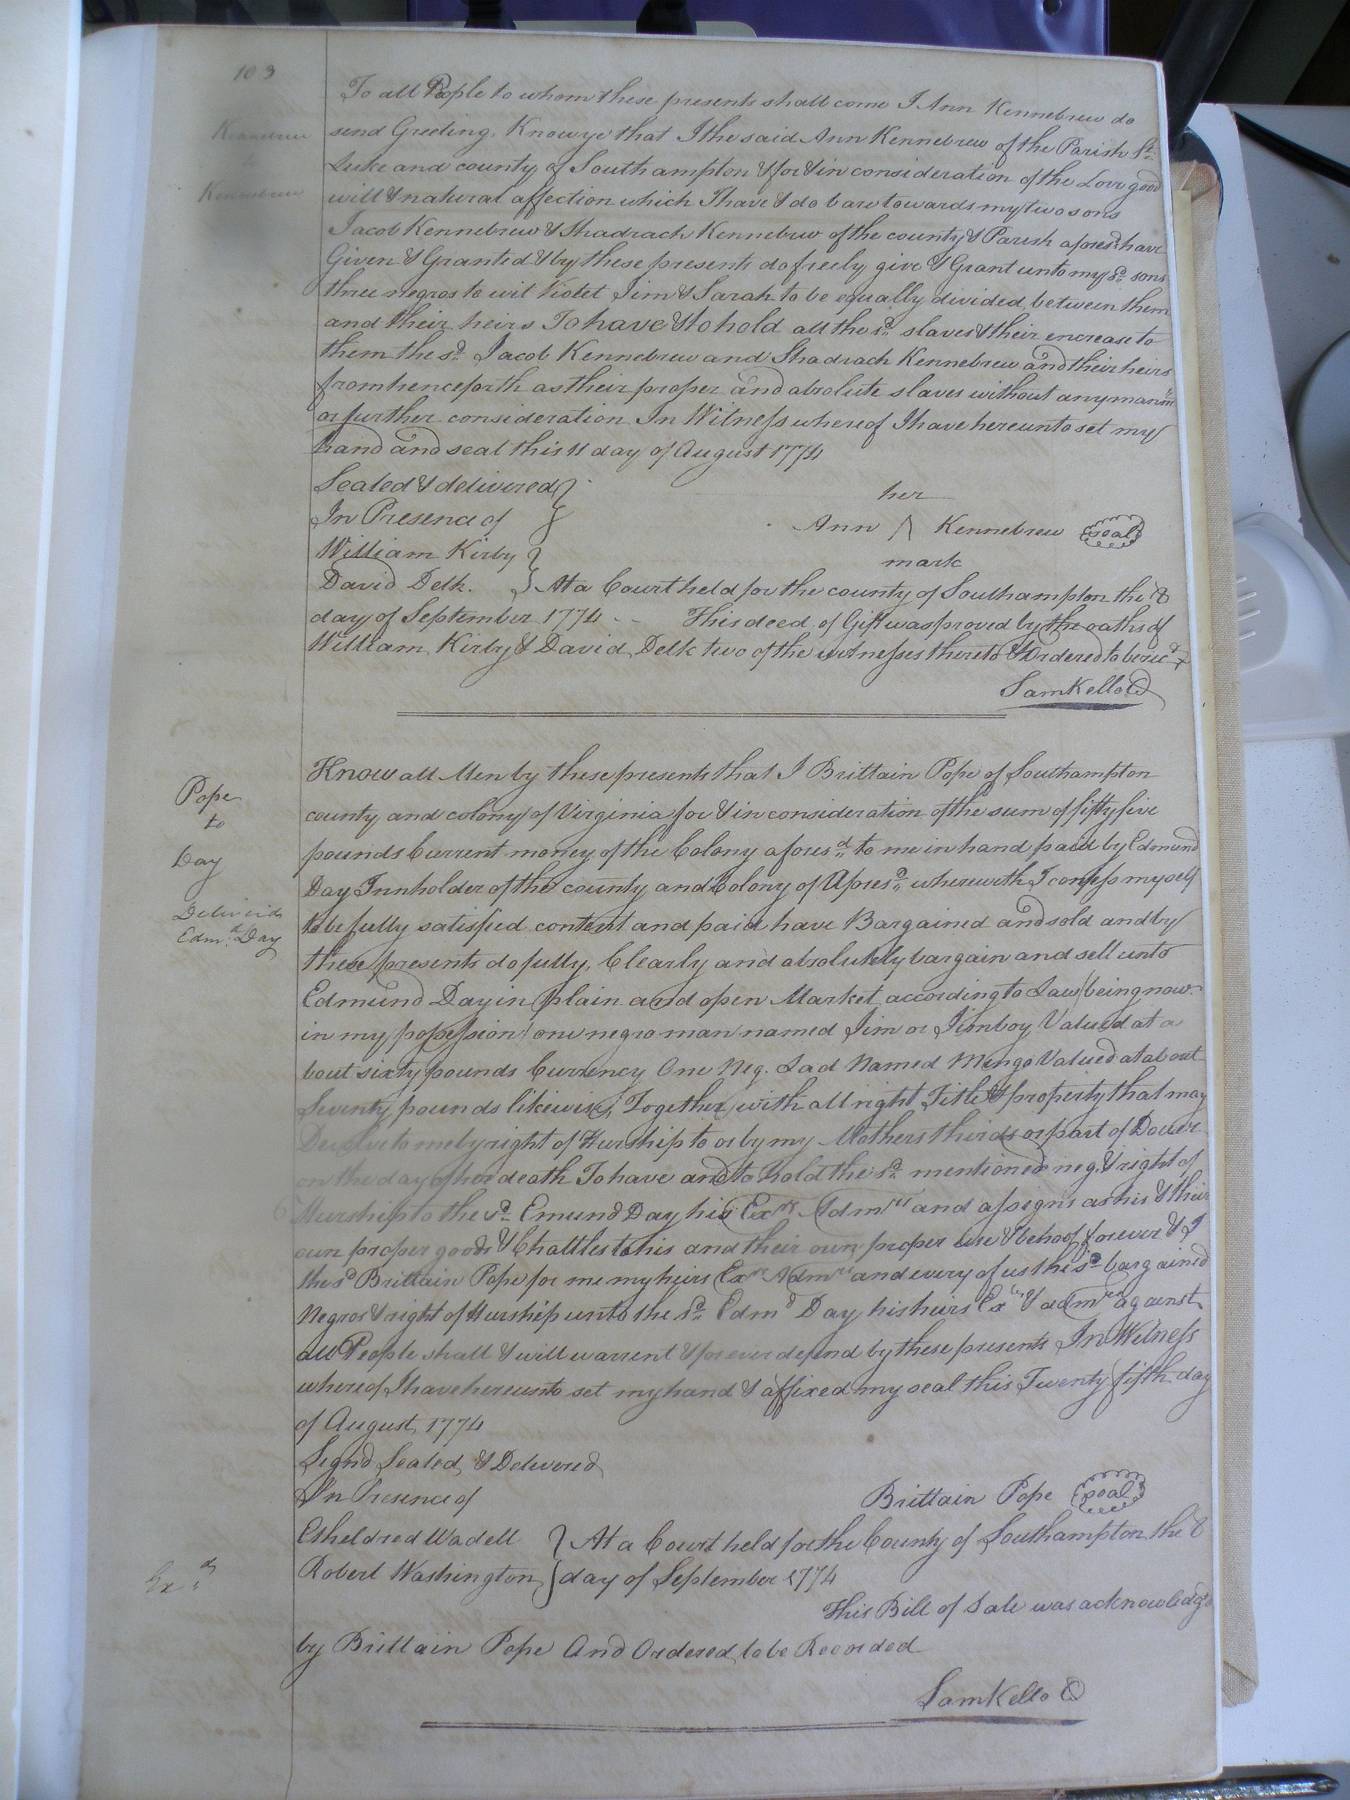 103
Kennebrew
to
Kennebrew
To all People to whom these presents shall come I Ann Kennebrew do
send Greeting. Know ye that I the said Ann Kennebrew of the Parish St.
Luke and county of Southampton & for & in consideration of the Love good
will & natural affection which I have & do bare towards my two sons
Jacob Kennebrew & Shadrach Kennebrew of the county & Parish aforesd. have
Given & Granted & by these presents do freely give & Grant unto my sd. sons
three negros to wit Violet Jim & Sarah to be equally divided between them
and their heirs To have & to hold all the sd. slaves & their encrease to
them the sd. Jacob Kennebrew and Shadrach Kennebrew and their heirs
from henceforth as their proper and absolute slaves without any mannr.
or further consideration In Witness whereof I have hereunto set my
hand and seal this 11 day of August 1774
Sealed & delivered }
In Presence of }
her
Ann /\ Kennebrew (seal)
mark
William Kirby }
David Delk. } At a Court held for the county of Southampton the 8
day of September 1774 - - This deed of Gift was proved by the oaths of
William Kirby & David Delk two of the witnesses thereto & Ordered to be recd.
Sam Kello C
Pope
to
Day
Deliverd
Edmd. Day
Know all Men by these presents that I Brittain Pope of Southampton
county and colony of Virginia for & in consideration of the sum of fifty five
pounds Current money of the Colony aforesd. to me in hand paid by Edmund
Day Innholder of the county and Colony of Aforesd. wherewith I confess myself
to be fully satisfied content and paid have Bargained and sold and by
these presents do fully, Clearly and absolutely bargain and sell unto
Edmund Day in plain and open Market according to Law (being now
in my possession) one negro man named Jim or Jimboy Valued at a
bout sixty pounds Currency One Neg. Lad Named Mingo Valued at about
Seventy pounds likewise, Together with all right Title & property that may
Devolve to me by right of Hurship to or by my Mothers thirds or part of Dower
on the day of her death To have and to hold the sd. mentioned neg. & right of
Hurship to the sd. Emund Day his Exrs. Admrs. and assigns as his & their
own proper goods & Chattles to his and their own proper use & behoof forever & I
the sd. Brittain Pope for me my heirs Exrs. Admrs. and every of us the sd. bargained
Negros & right of Hurship unto the sd. Edmd. Day his heirs Exrs. & admrs. against
all People shall & will warrent & forever defend by these presents In Witness
whereof I have hereunto set my hand & affixed my seal this Twenty fifth day
of August 1774
Signd Sealed & Delivered
In Presence of
Brittain Pope (seal)
Etheldred Wadell } At a Court held for the County of Southampton the 8
Robert Washington } day of September 1774
This Bill of Sale was acknowledgd.
Exd.
by Brittain Pope And Ordered to be Recorded
Sam Kello C